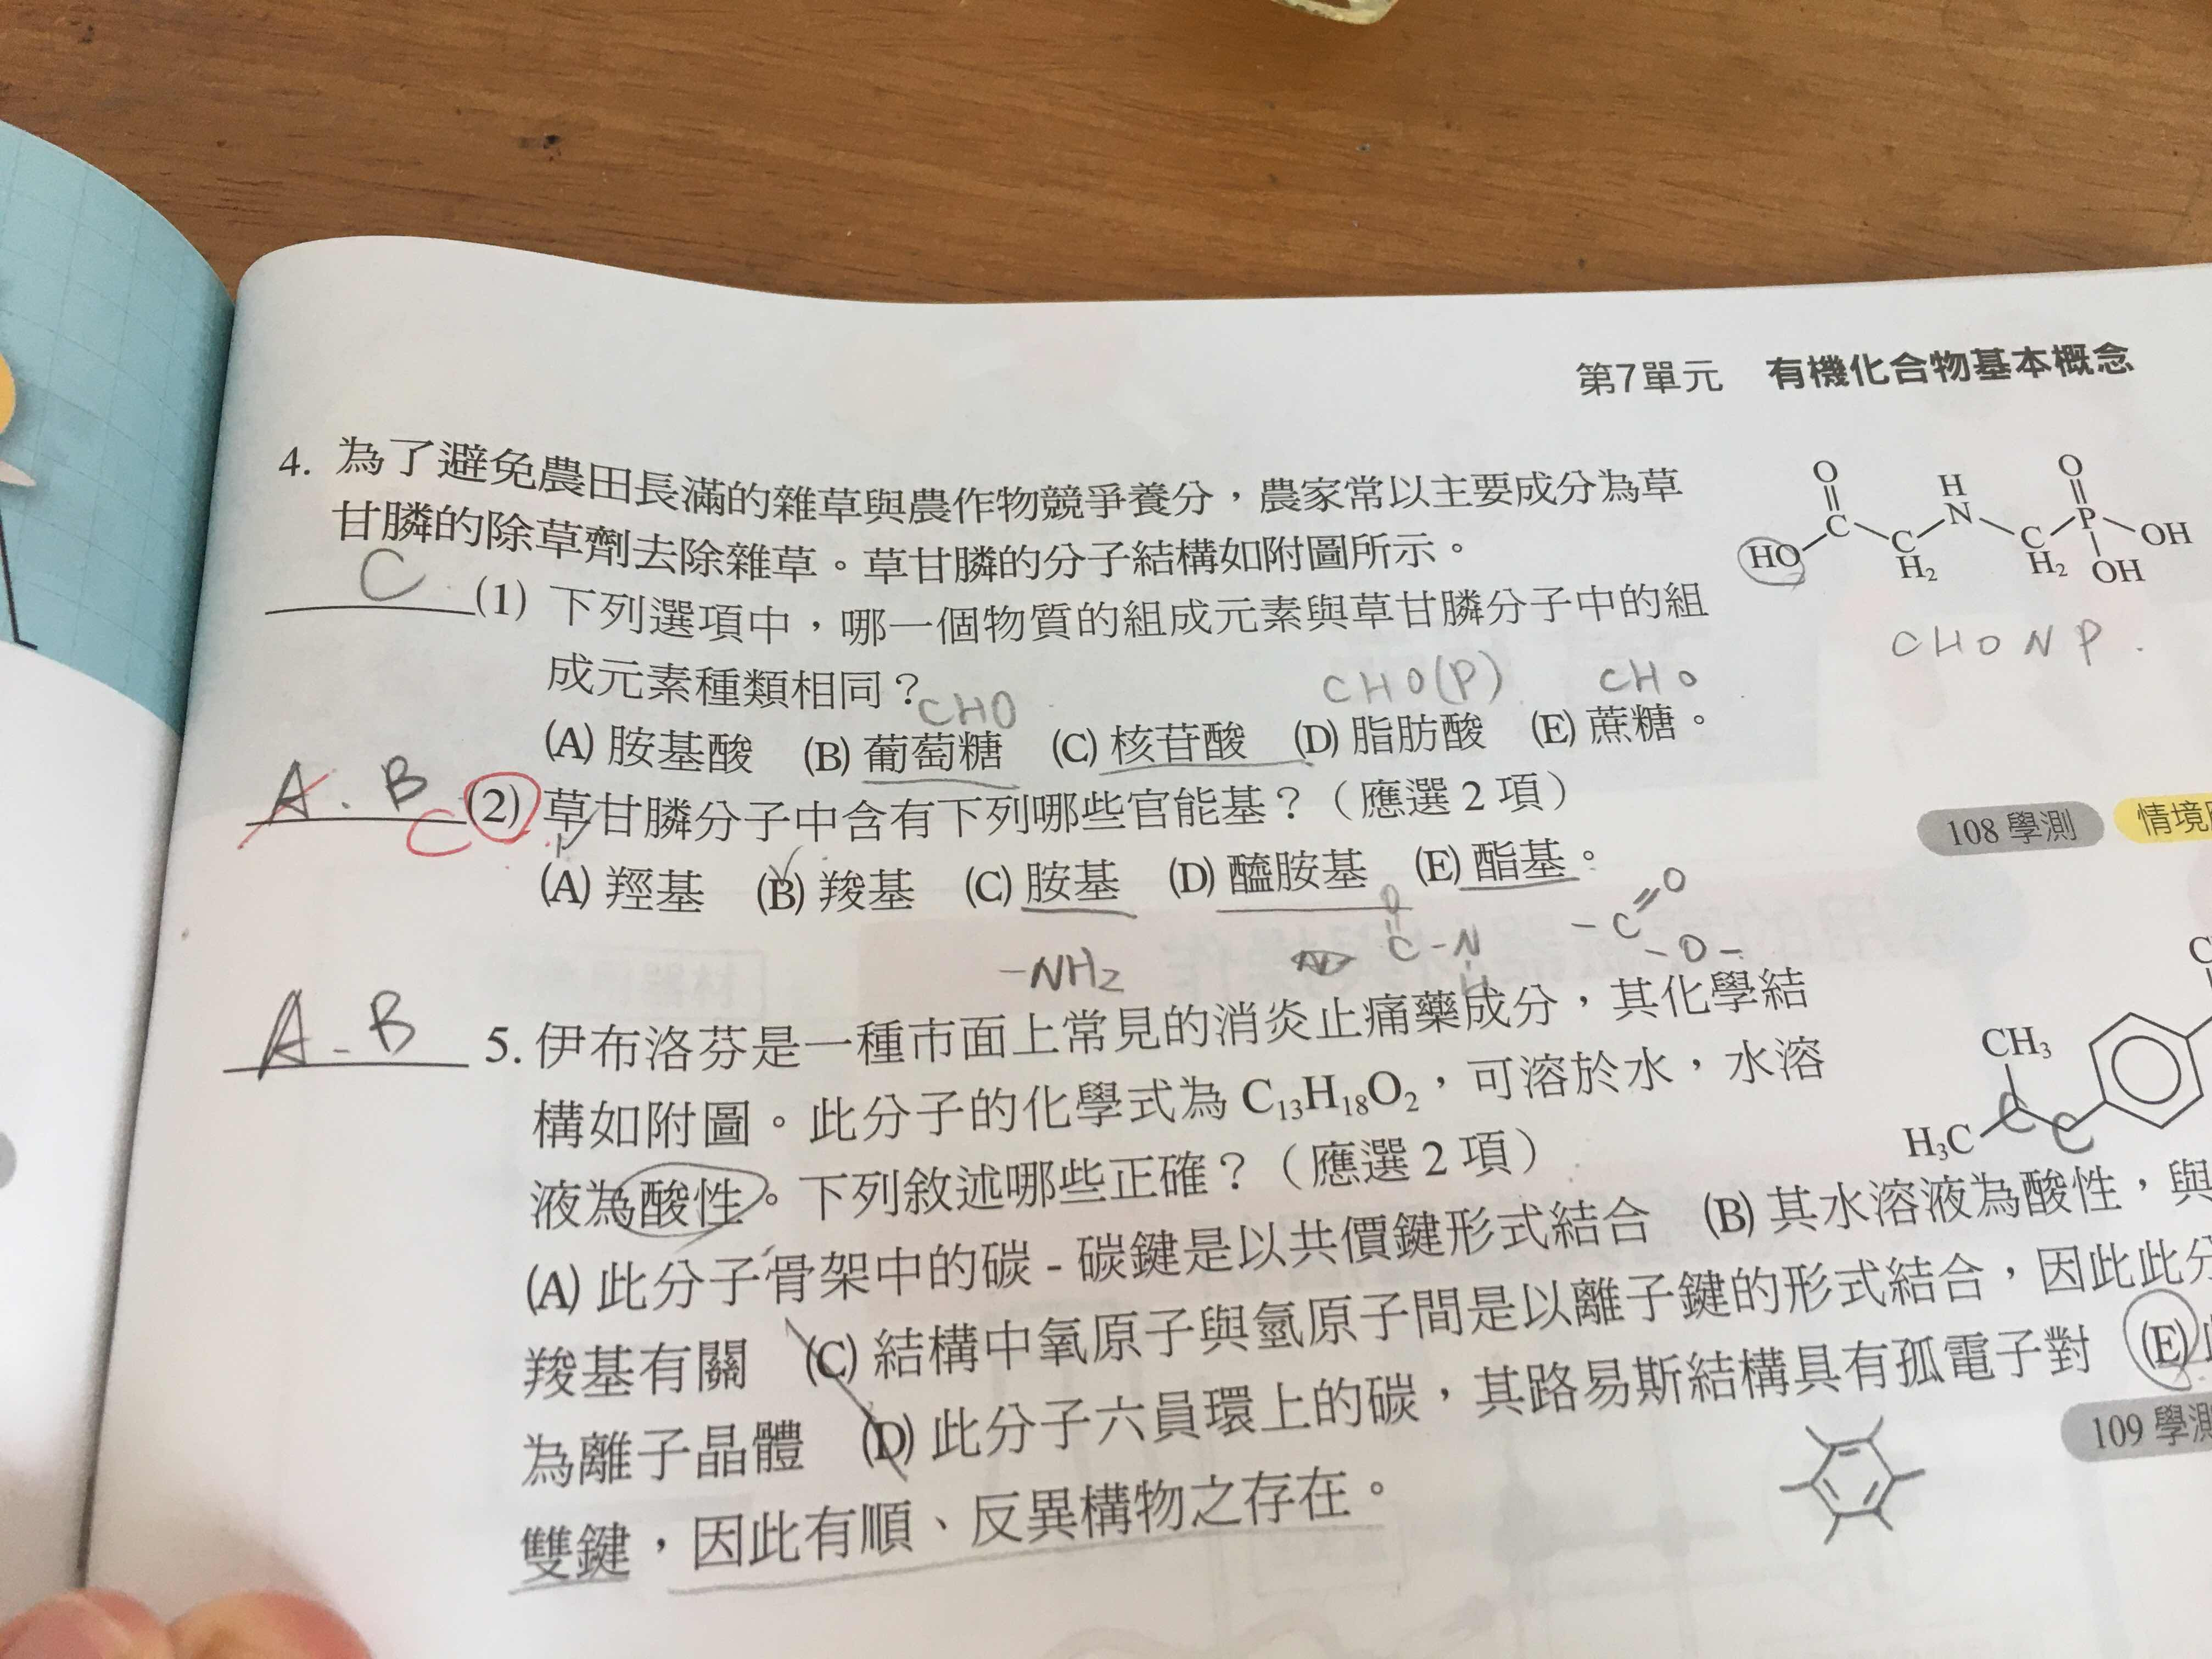 第7單元　有機化合物基本概念
4. 為了避免農田長滿的雜草與農作物競爭養分，農家常以主要成分為草
甘膦的除草劑去除雜草。草甘膦的分子結構如附圖所示。
O H O
HO C C H₂ N C H₂ P OH OH
CHONP.
C (1) 下列選項中，哪一個物質的組成元素與草甘膦分子中的組
成元素種類相同？
CHO CHO(P) CHO
(A) 胺基酸 (B) 葡萄糖 (C) 核苷酸 (D) 脂肪酸 (E) 蔗糖。
A. B C (2) 草甘膦分子中含有下列哪些官能基？（應選 2 項）
108 學測 情境
(A) 羥基 (B) 羧基 (C) 胺基 (D) 醯胺基 (E) 酯基。
-NH₂ O C-N H -C O -O-
A-B 5. 伊布洛芬是一種市面上常見的消炎止痛藥成分，其化學結
構如附圖。此分子的化學式為 C₁₃H₁₈O₂，可溶於水，水溶
CH₃
H₃C C C
液為酸性。下列敘述哪些正確？（應選 2 項）
(A) 此分子骨架中的碳 - 碳鍵是以共價鍵形式結合 (B) 其水溶液為酸性，與
羧基有關 (C) 結構中氧原子與氫原子間是以離子鍵的形式結合，因此此分
為離子晶體 (D) 此分子六員環上的碳，其路易斯結構具有孤電子對 (E)
109 學測
雙鍵，因此有順、反異構物之存在。